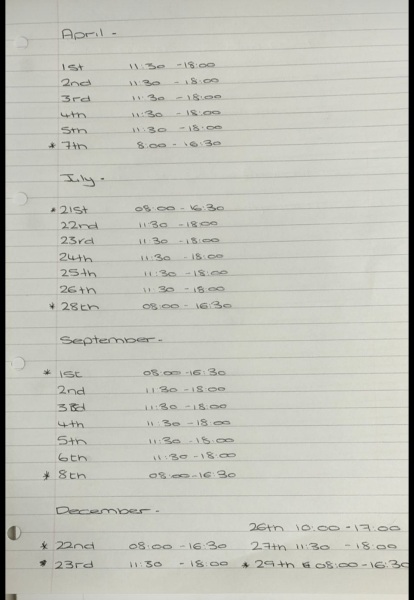 April -
1st 11:30 - 18:00
2nd 11:30 - 18:00
3rd 11:30 - 18:00
4th 11:30 - 18:00
5th 11:30 - 18:00
* 7th 8:00 - 16:30
July -
* 21st 08:00 - 16:30
22nd 11:30 - 18:00
23rd 11:30 - 18:00
24th 11:30 - 18:00
25th 11:30 - 18:00
26th 11:30 - 18:00
* 28th 08:00 - 16:30
September -
* 1st 08:00 - 16:30
2nd 11:30 - 18:00
3rd 11:30 - 18:00
4th 11:30 - 18:00
5th 11:30 - 18:00
6th 11:30 - 18:00
* 8th 08:00 - 16:30
December -
26th 10:00 - 17:00
* 22nd 08:00 - 16:30 27th 11:30 - 18:00
* 23rd 11:30 - 18:00 * 29th 08:00 - 16:30